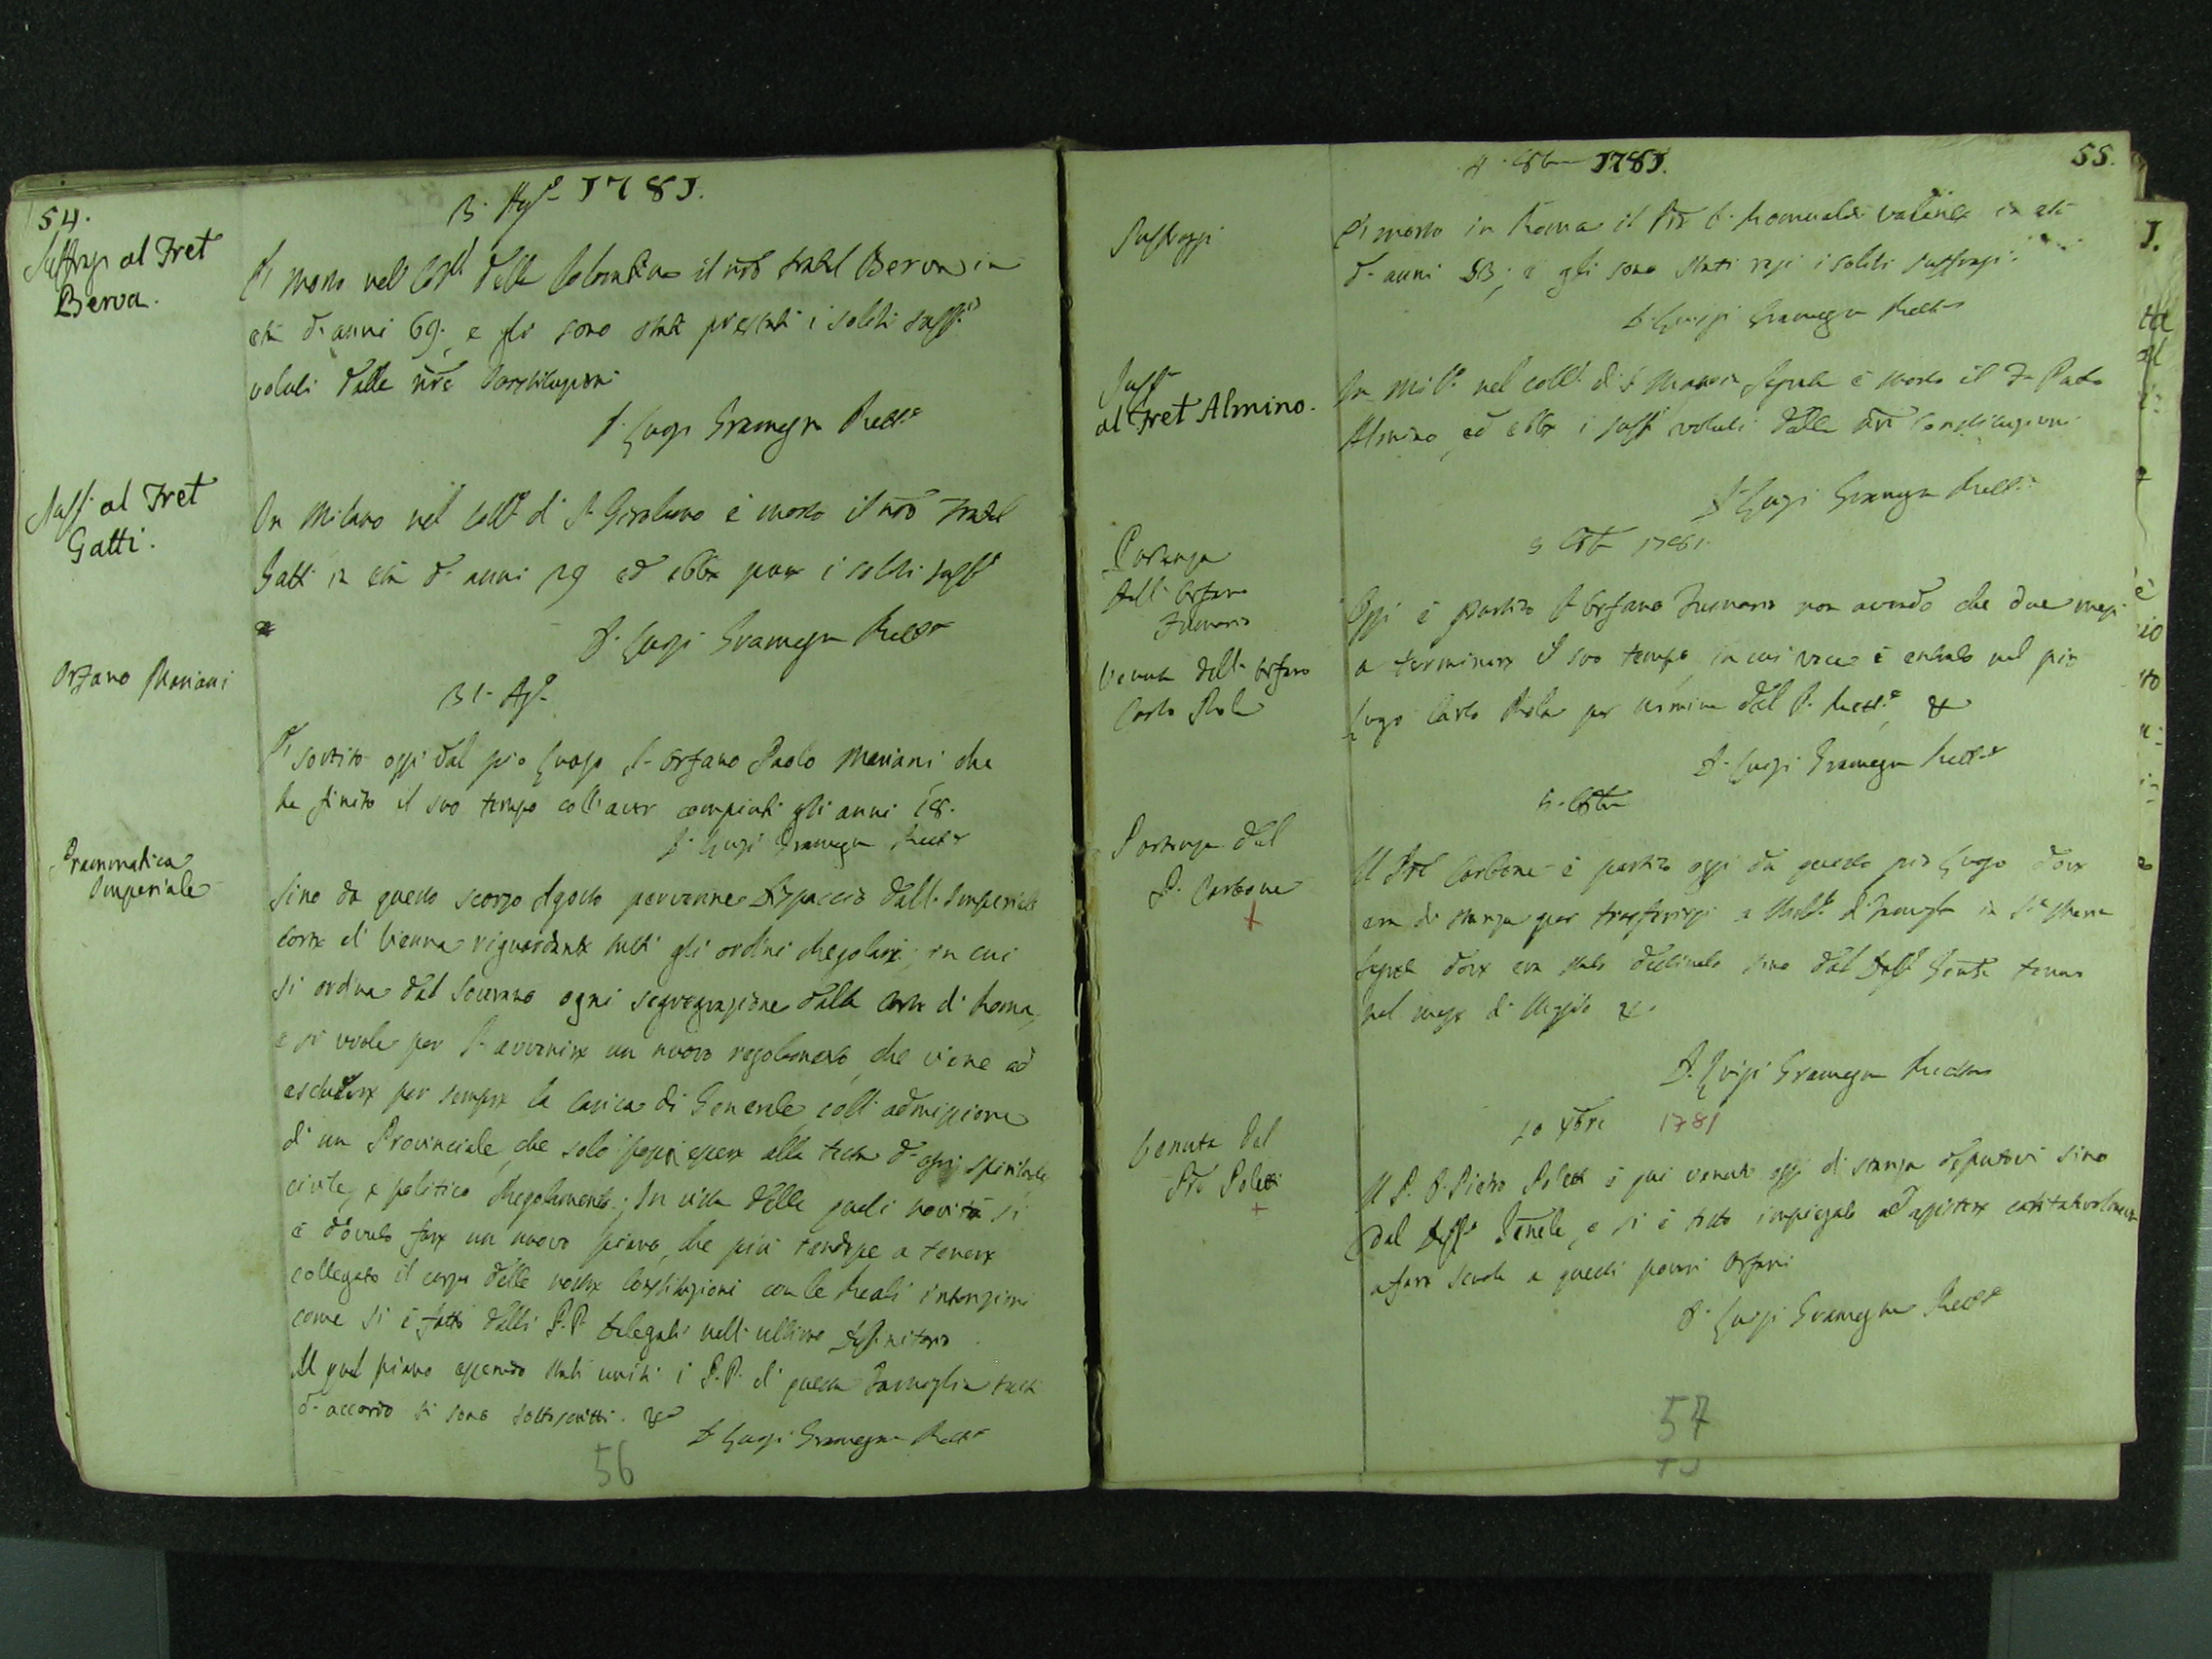 54.
13. Agº 1781.
Suffragi al Fret
Berva.
E' morto nel Collº della Colombina il nrõ fratel Berva in
età d'anni 69., e gli sono stati prestati i soliti suffⁱ
voluti dalle nrẽ Constituzioni
D. Luigi Gramegna Rettre
Suff. al Fret
Gatti.
In Milano nel Collº di S. Girolamo è morto il nrõ Fratel
Gatti in età d'anni 29 ed ebbe pure i soliti suffⁱ
&
D. Luigi Gramegna Rettre
Orfano Mariani
31. Agº
E' sortito oggi dal pio Luogo l'orfano Paolo Mariani, che
ha finito il suo tempo coll'aver compiuti gli anni 18.
D. Luigi Gramegna Rettre
Prammatica
Imperiale
Sino da questo scorso Agosto pervenne Dispaccio dall'Imperiale
Corte di Vienna riguardante tutti gli ordini Regolari; in cui
si ordina dal Sovrano ogni segregazione dalla Corte di Roma,
e si vuole per l'avvenire un nuovo regolamento, che viene ad
escludere per sempre la carica di Generale, coll'admissione
di un Provinciale, che solo possa essere alla testa d'ogni spirituale
civile, e politico Regolamento. In vista delle quali novità si
è dovuto fare un nuovo piano, che più tendesse a tenere
collegato il corpo delle nostre Constituzioni con le Reali intenzioni
come si è fatto dalli P.P. Delegati nell'ultimo Definitorio.
Al qual piano essendo stati uniti i P.P. di questa Famiglia tutti
d'accordo si sono sottoscritti. &
D. Luigi Gramegna Rettre
56
55.
4. 8bre 1781.
Suffraggi
E' morto in Roma il Pre D. Romualdo in età
d'anni 53; e gli sono stati resi i soliti suffragi.
D. Luigi Gramegna Rettre
Suff.
al Fret Almino.
In Milº nel collº di S. Maria Segreta è morto il F. Paolo
Almino, ed ebbe i suffⁱ voluti dalle nrẽ Constituzioni
D. Luigi Gramegna Rettre
9 8bre 1781.
Partenza
dell'Orfano
Fumario
Venuta dell'orfano
Carlo Riola
Oggi è partito l'Orfano Fumario non avendo che due mesi
a terminare il suo tempo, in cui vece è entrato nel pio
Luogo Carlo Riola per nomina del P. Rettre, &
D. Luigi Gramegna Rettre
8bre
Partenza del
P. Carbone
+
Il Pre Carbone è partito oggi da questo pio Luogo dove
era di stanza per trasferirsi a Milº di Famiglia in Sª Maria
Segreta dove era stato destinato sino dal Deffº tenuto
nel mese di Maggio &.
D. Luigi Gramegna Rettore
10 Xbre 1781
Venuta del
Pre Poletti
+
Il P. D. Pietro Poletti è qui venuto oggi di stanza deputovi sino
dal Deffº Genele, e si è tosto impiegato ad assistere caritatevolmente
a fare scuola a questi poveri Orfani
D. Luigi Gramegna Rettre
57